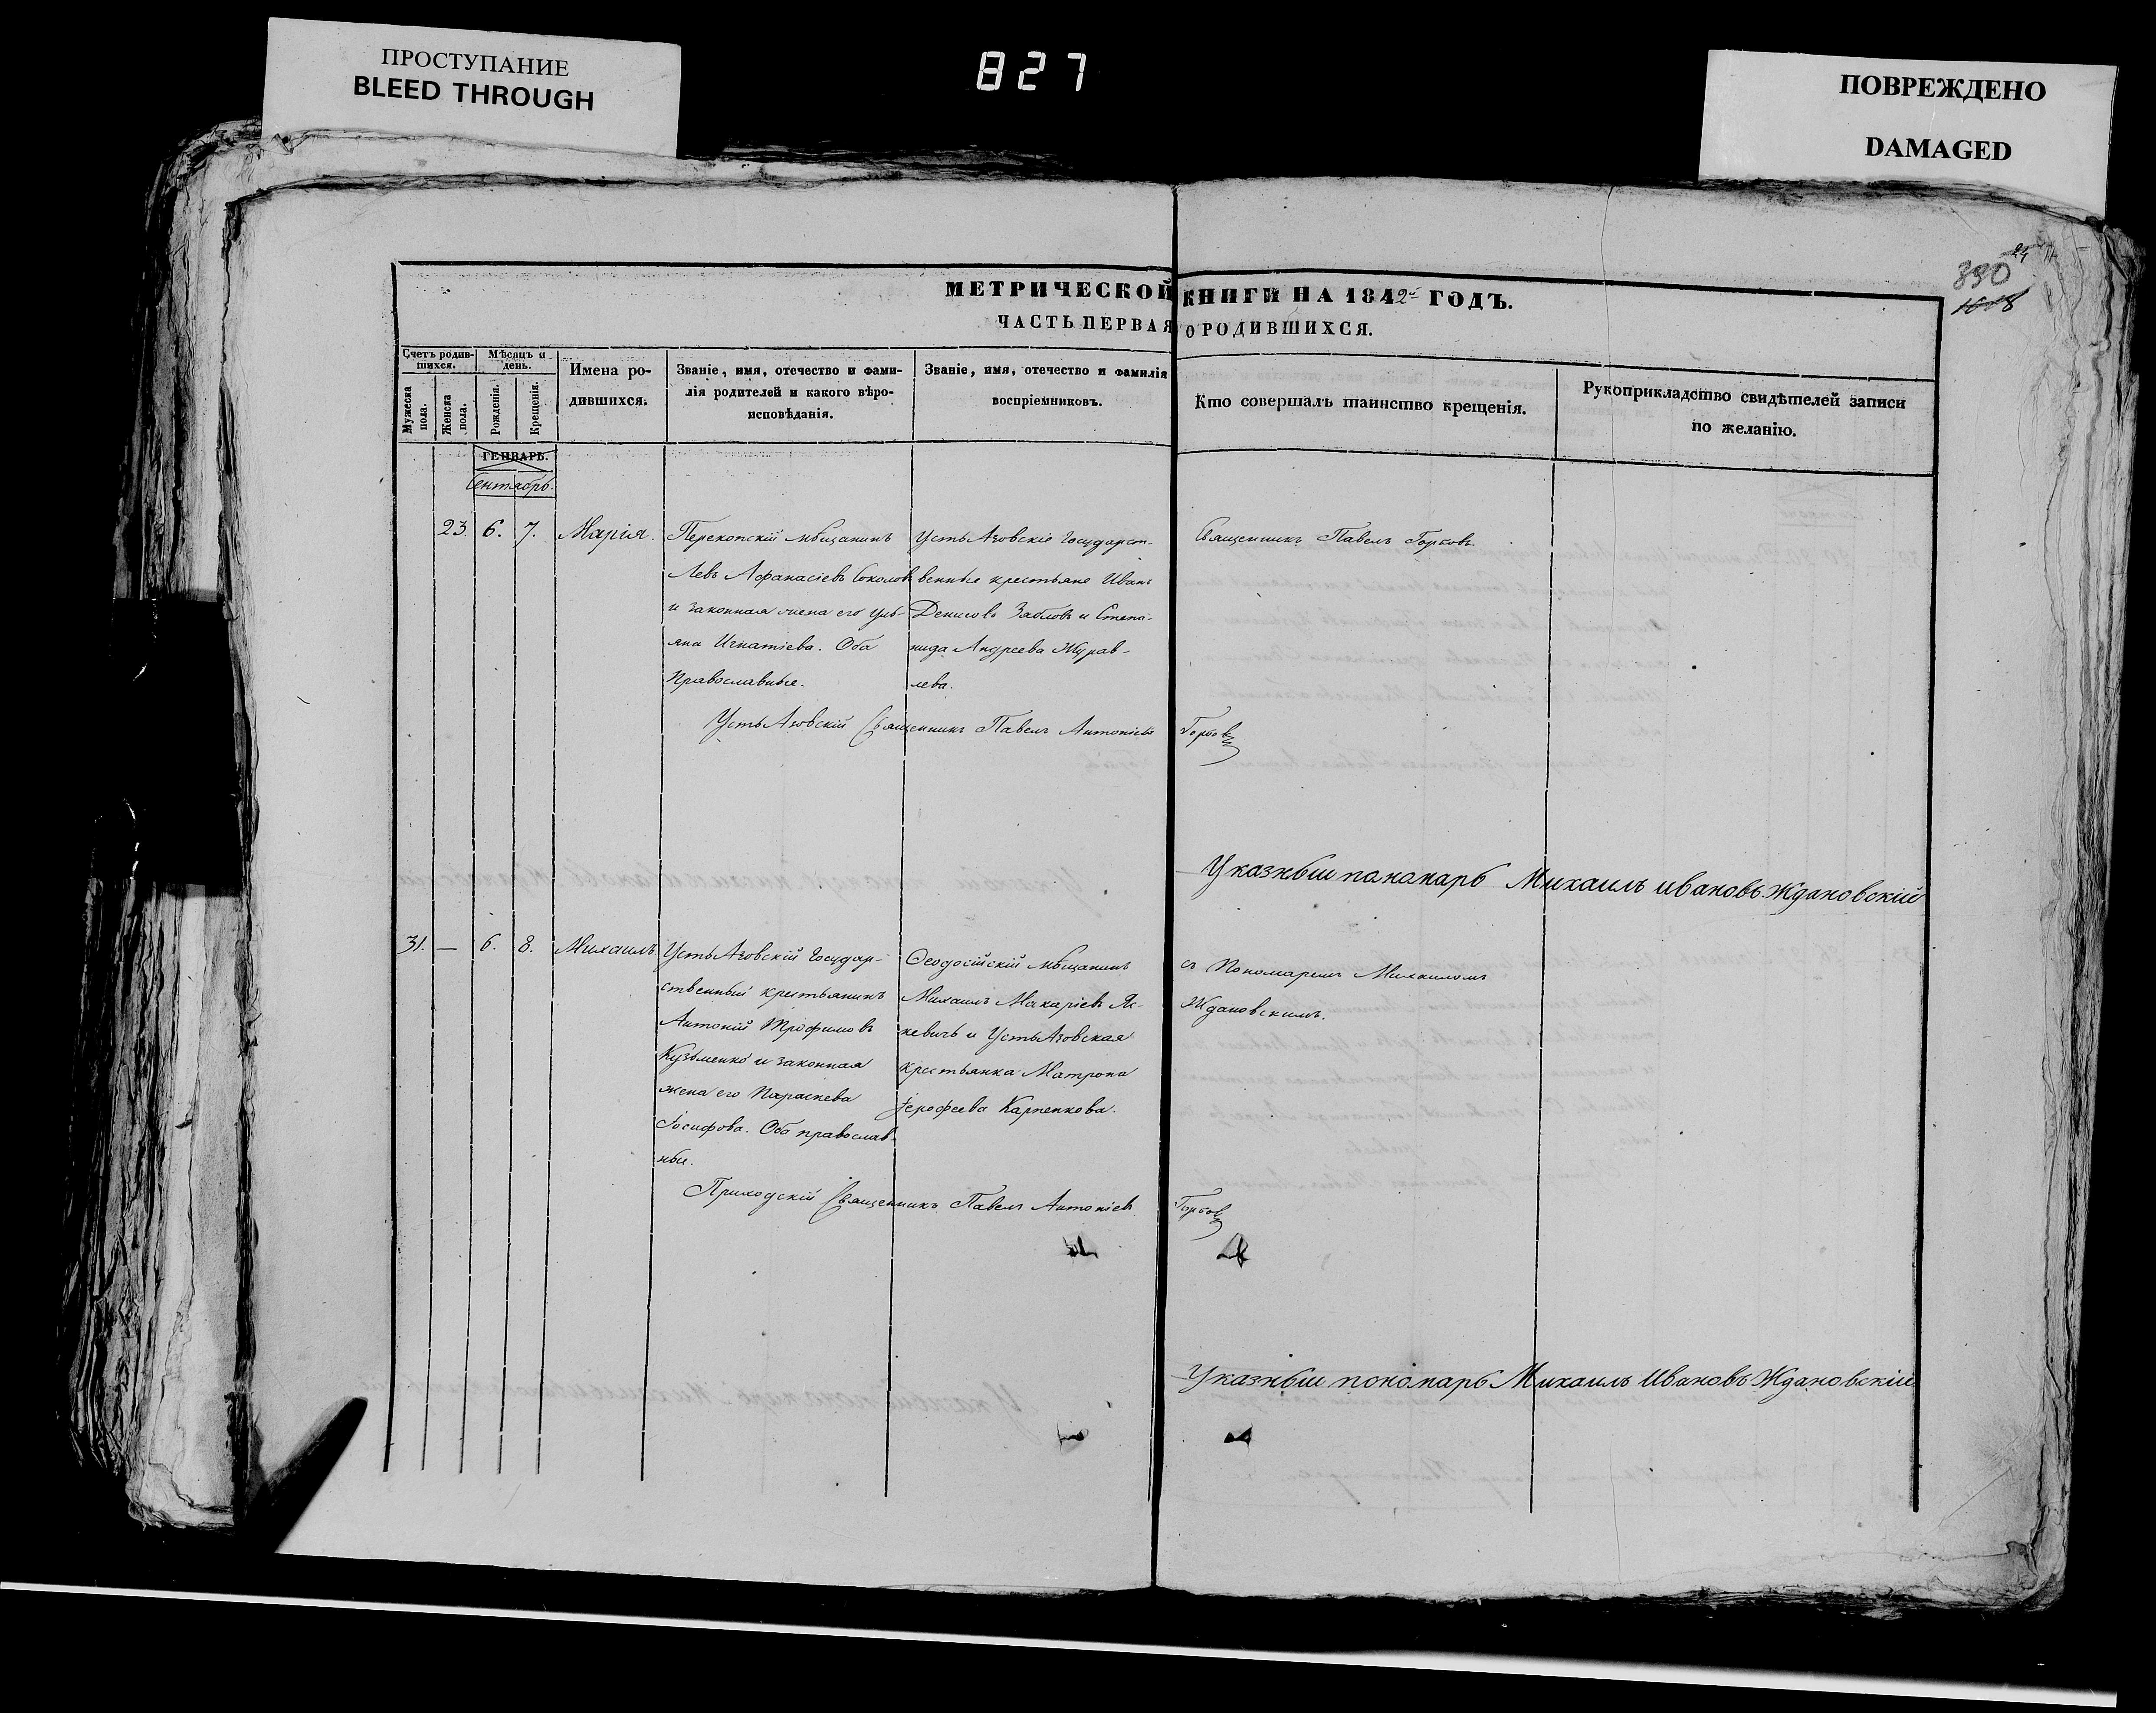 ПРОСТУПАНИЕ
BLEED THROUGH
827
ПОВРЕЖДЕНО
DAMAGED
24
390
1618
МЕТРИЧЕСКОЙ КНИГИ НА 1842й ГОДЪ.
ЧАСТЬ ПЕРВАЯ О РОДИВШИХСЯ.
Счетъ родив-
шихся.
Мужеска пола.
Женска пола.
Мѣсяцъ и
день.
Рожденія.
Крещенія.
Имена ро-
дившихся.
Званіе, имя, отечество и фами-
лія родителей и какого вѣро-
исповѣданія.
Званіе, имя, отечество и фамилія
воспріемниковъ.
Кто совершалъ таинство крещенія.
Рукоприкладство свидѣтелей записи
по желанію.
ГЕНВАРЬ.
Сентябрь.
23. 6. 7. Марія.
Перекопскій мѣщанинъ
Левъ Афанасіевъ Соколовъ
и законная жена его Уль-
яна Игнатіева. Оба
Православные.
Усть Азовскіе Государст-
венные крестьяне Иванъ
Денисовъ Зябловъ и Степа-
нида Андреева Журав-
лева.
Священникъ Павелъ Горбовъ
Усть Азовскій Священникъ Павелъ Антоніевъ Горбовъ
Указныи панамарь Михаилъ ивановъ Ждановскій
31. — 6. 8. Михаилъ
Усть Азовскій Государ-
ственный крестьянинъ
Антоній Трофимовъ
Кузьменко и законная
жена его Параскева
Іосифова. Оба православ-
ные.
Ѳеодосійскій мѣщанинъ
Михаилъ Макаріевъ
и Усть Азовская
крестьянка Матрона
Іерофеева Карпенкова.
съ Пономаремъ Михаиломъ
Ждановскимъ.
Приходскій Священникъ Павелъ Антоніевъ Горбовъ
Указныи пономарь Михаилъ Ивановъ Ждановскій